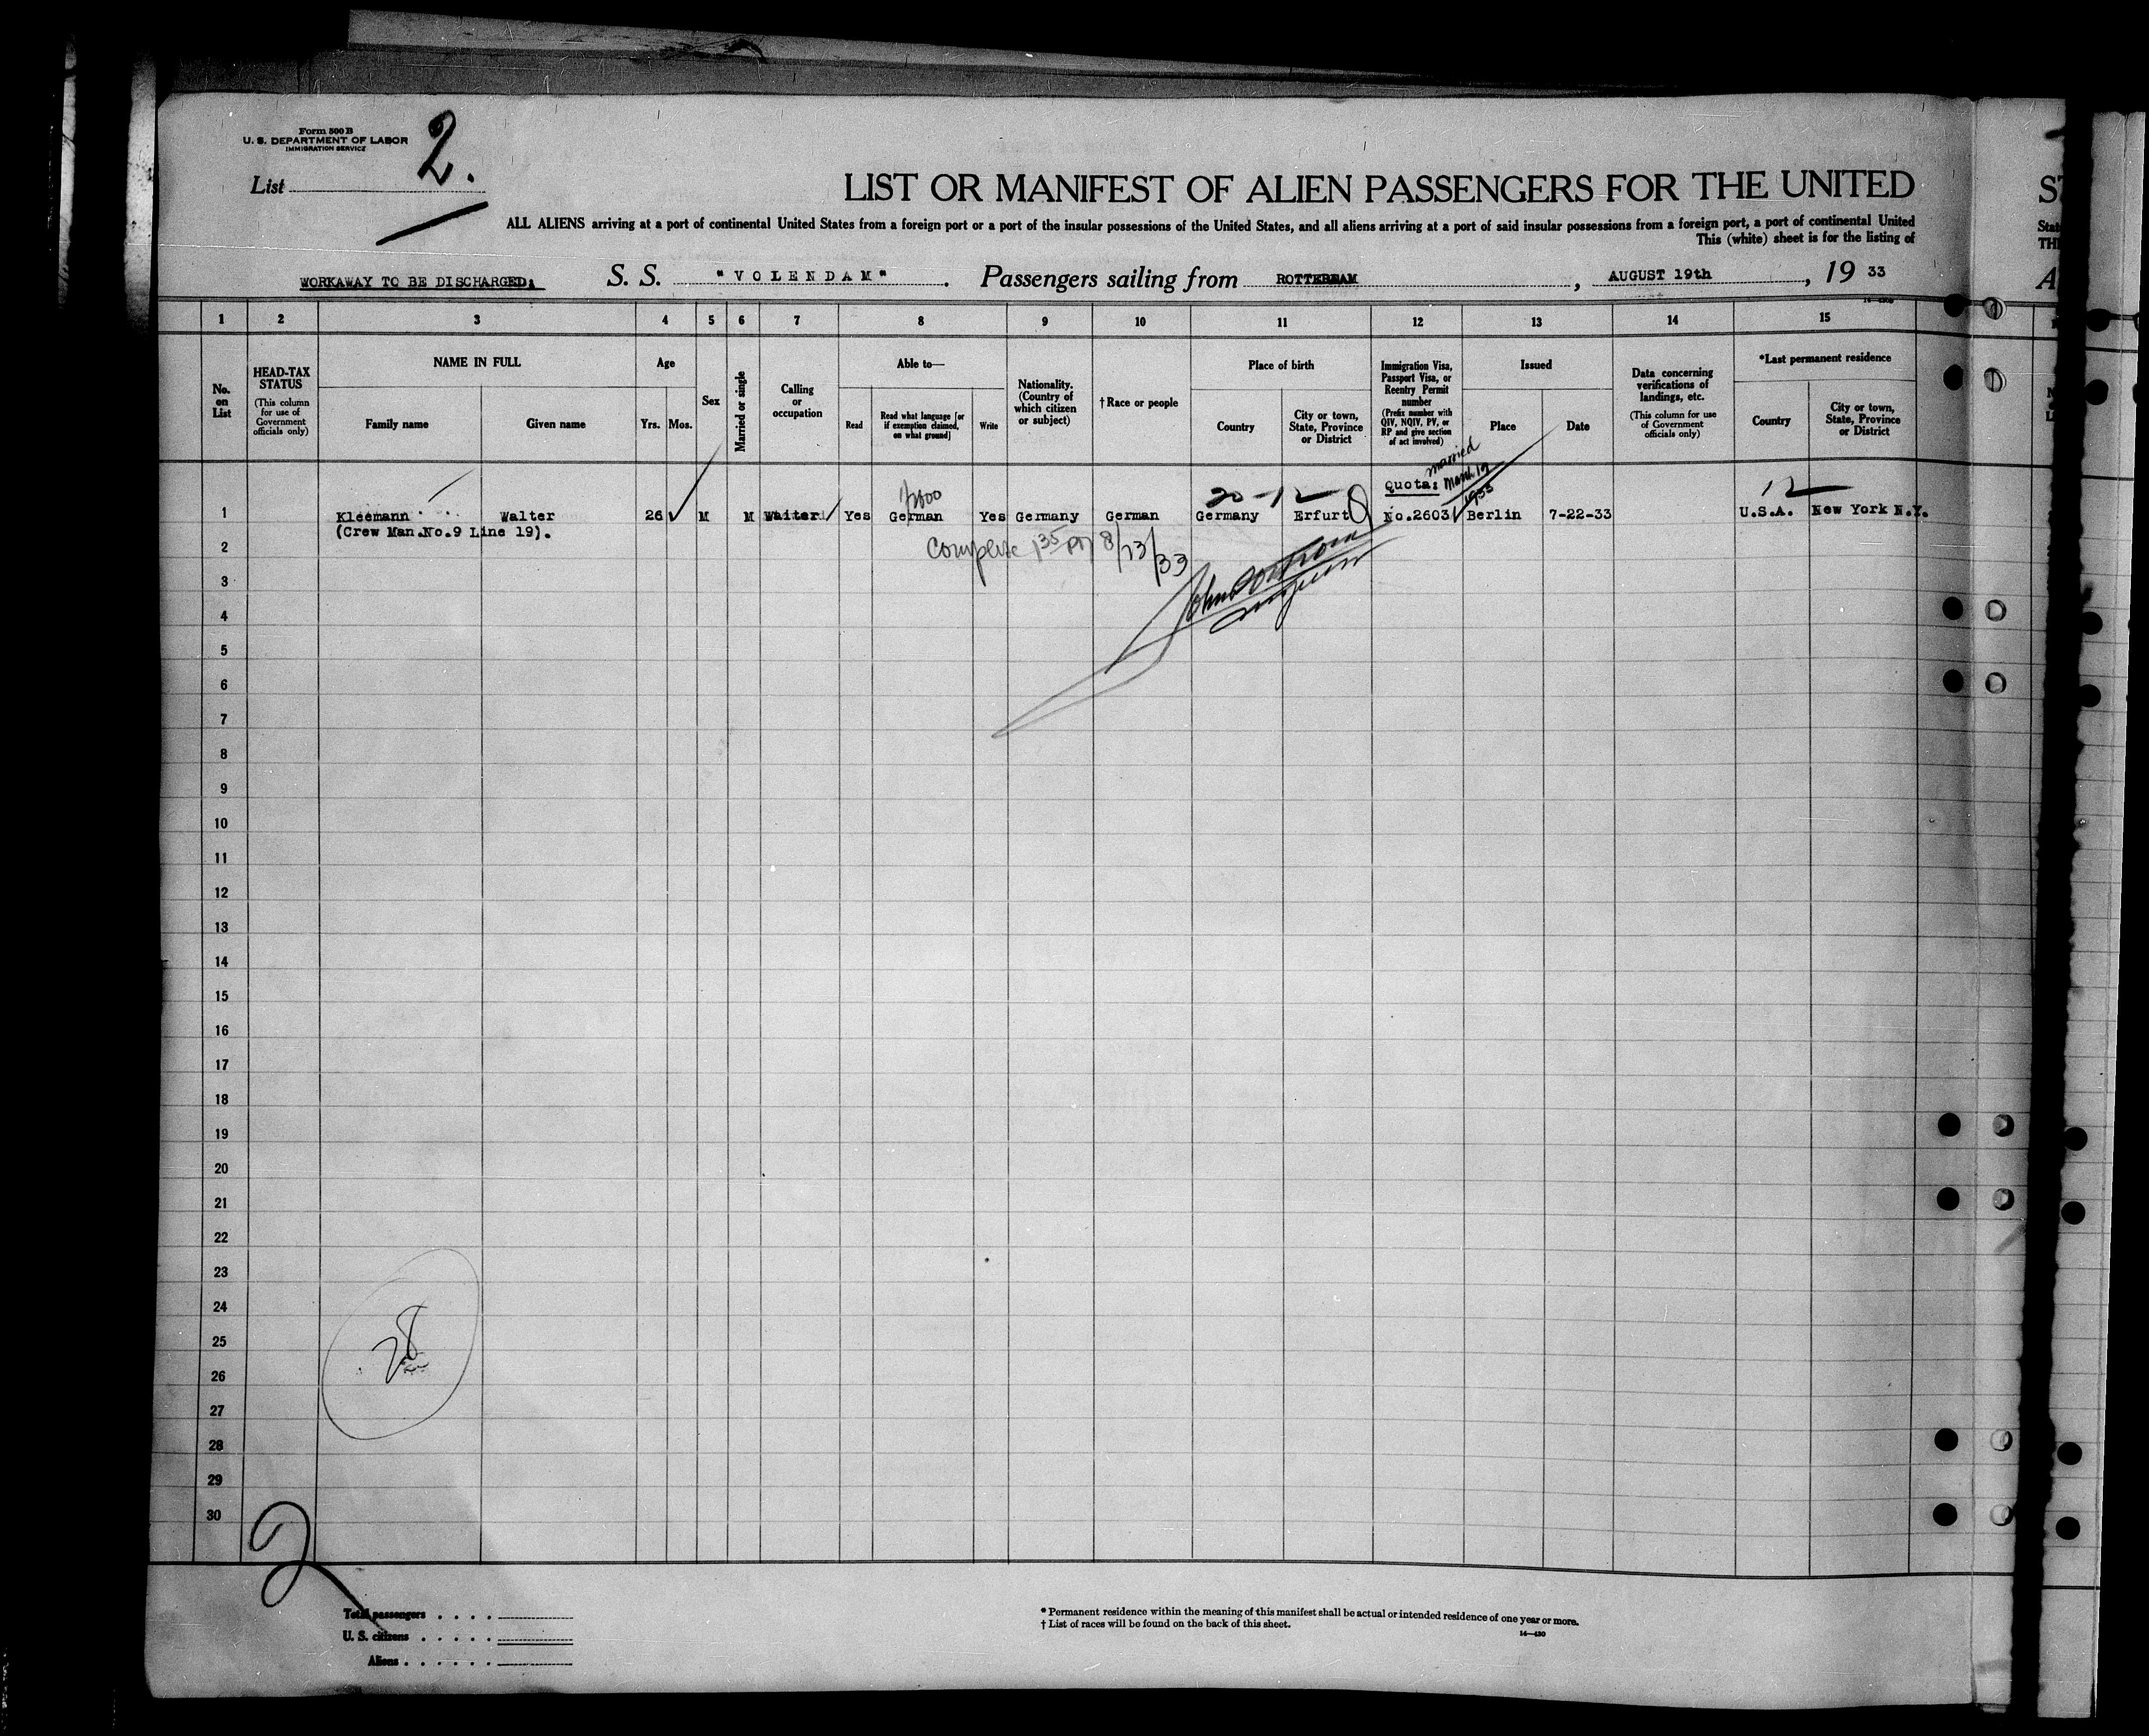 Form 500 B
U. S. DEPARTMENT OF LABOR
IMMIGRATION SERVICE
List 2.
LIST OR MANIFEST OF ALIEN PASSENGERS FOR THE UNITED
ALL ALIENS arriving at a port of continental United States from a foreign port or a port of the insular possessions of the United States, and all aliens arriving at a port of said insular possessions from a foreign port, a port of continental United
This (white) sheet is for the listing of
WORKAWAY TO BE DISCHARGED; S. S. "VOLENDAM". Passengers sailing from ROTTERDAM, AUGUST 19th, 19 33
1 2 3 4 5 6 7 8 9 10 11 12 13 14 15
No. on List
HEAD-TAX STATUS
(This column for use of Government officials only)
NAME IN FULL
Family name Given name
Age
Yrs. Mos.
Sex
Married or single
Calling or occupation
Able to—
Read
Read what language [or if exemption claimed, on what ground]
Write
Nationality. (Country of which citizen or subject)
†Race or people
Place of birth
Country
City or town, State, Province or District
Immigration Visa, Passport Visa, or Reentry Permit number
(Prefix number with QIV, NQIV, PV, or RP and give section of act involved)
Issued
Place Date
Data concerning verifications of landings, etc.
(This column for use of Government officials only)
*Last permanent residence
Country
City or town, State, Province or District
married
Quota: March 19
1933
20-12 12
1 Kleemann Walter 26 M M Waiter Yes German Yes Germany German Germany Erfurt No.2603 Berlin 7-22-33 U.S.A. New York N.Y.
(Crew Man.No.9 Line 19).
2 Complete 135 PM
3
4
5
6
7
8
9
10
11
12
13
14
15
16
17
18
19
20
21
22
23
24
25
26
27
28
29
30
2
Total passengers
U. S. citizens
Aliens
* Permanent residence within the meaning of this manifest shall be actual or intended residence of one year or more.
† List of races will be found on the back of this sheet.
14—430